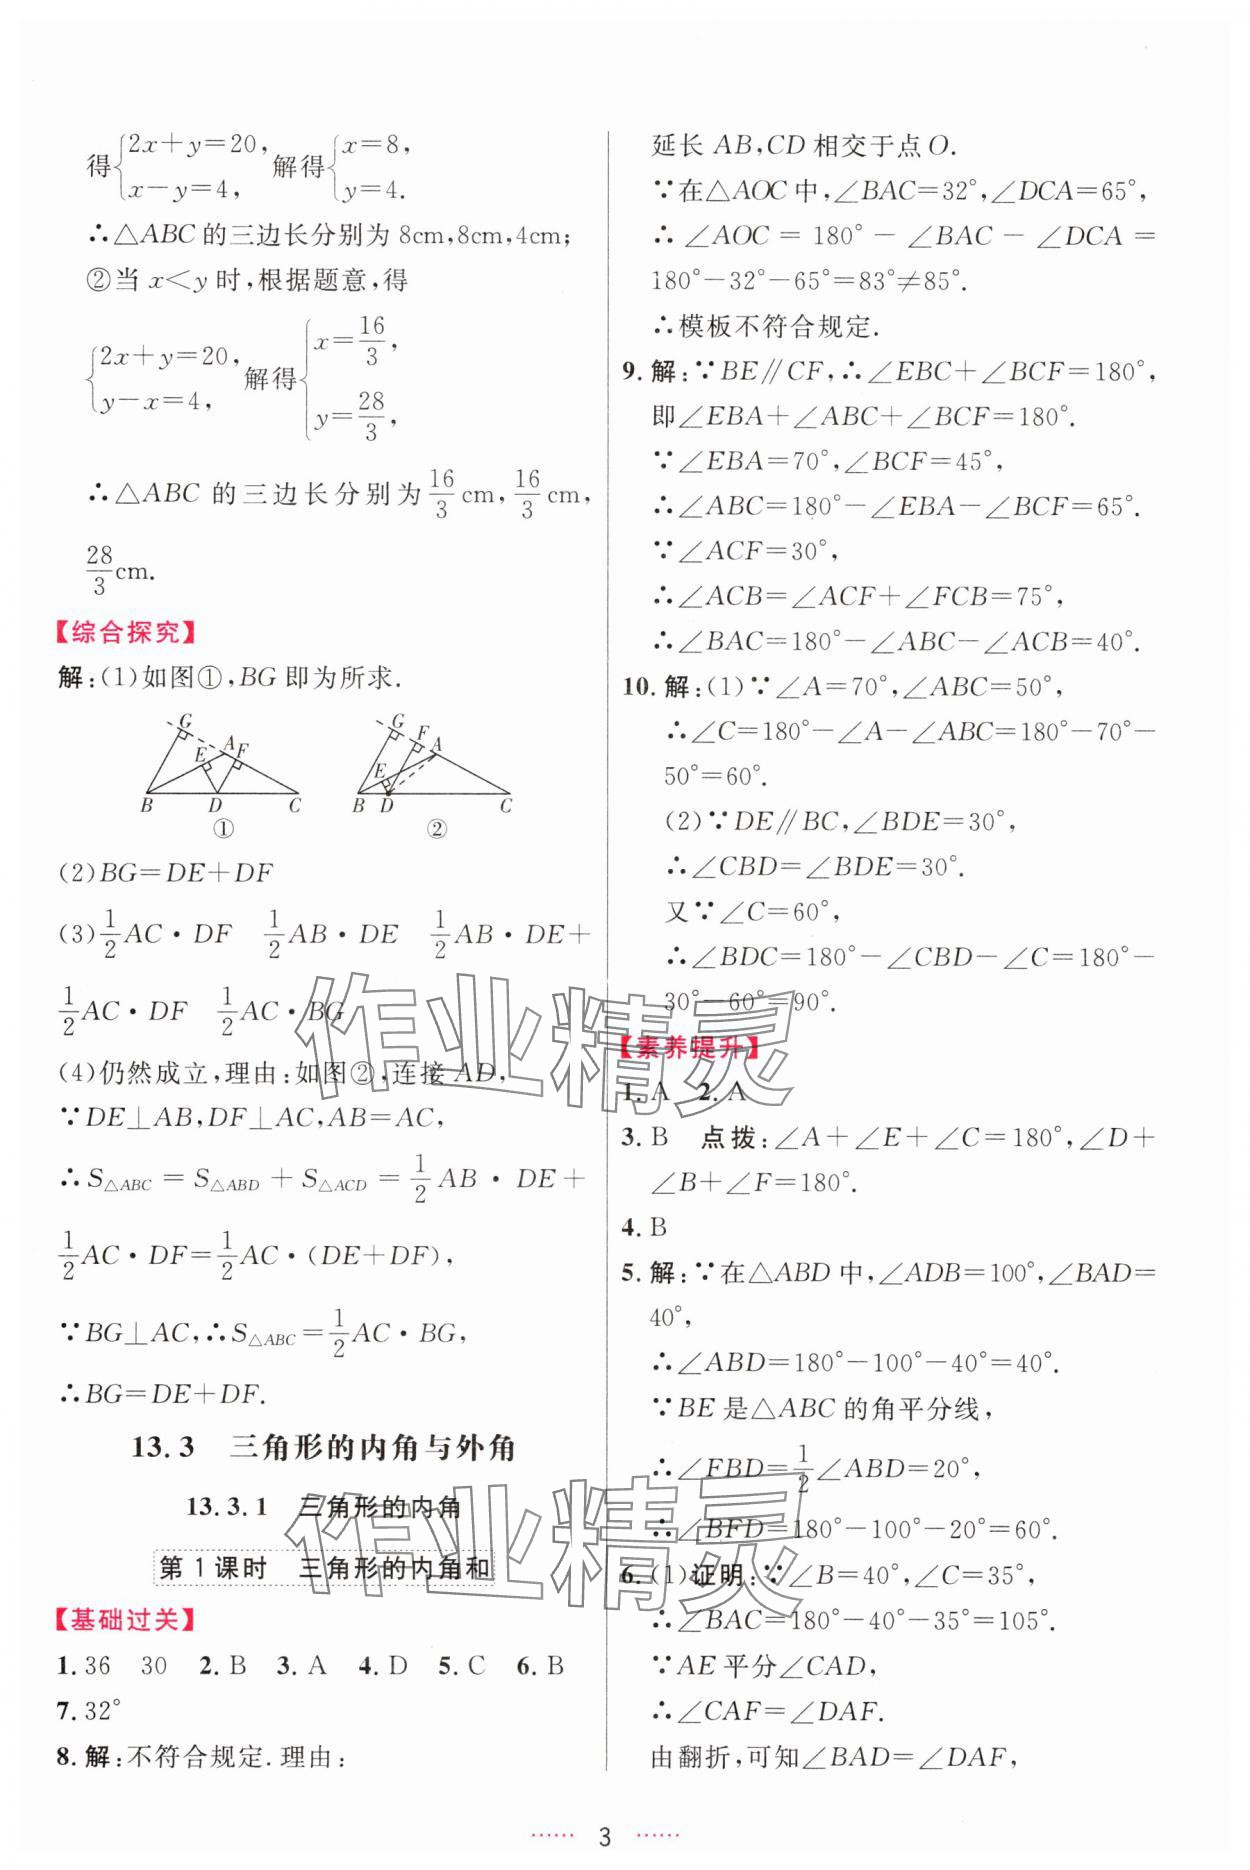 得{2x+y=20, x-y=4, 解得{x=8, y=4.
∴△ABC的三边长分别为8cm,8cm,4cm;
②当x<y时,根据题意,得
{2x+y=20, y-x=4, 解得{x=16/3, y=28/3,
∴△ABC的三边长分别为16/3cm,16/3cm,
28/3cm.
【综合探究】
解:(1)如图①,BG即为所求.
G E A F B D C ①
G F A E B D C ②
(2)BG=DE+DF
(3)1/2AC·DF 1/2AB·DE 1/2AB·DE+
1/2AC·DF 1/2AC·BG
(4)仍然成立,理由:如图②,连接AD,
∵DE⊥AB,DF⊥AC,AB=AC,
∴S△ABC=S△ABD+S△ACD=1/2AB·DE+
1/2AC·DF=1/2AC·(DE+DF),
∵BG⊥AC,∴S△ABC=1/2AC·BG,
∴BG=DE+DF.
13.3 三角形的内角与外角
13.3.1 三角形的内角
第1课时 三角形的内角和
【基础过关】
1.36 30 2.B 3.A 4.D 5.C 6.B
7.32°
8.解:不符合规定.理由:
延长AB,CD相交于点O.
∵在△AOC中,∠BAC=32°,∠DCA=65°,
∴∠AOC=180°-∠BAC-∠DCA=
180°-32°-65°=83°≠85°.
∴模板不符合规定.
9.解:∵BE∥CF,∴∠EBC+∠BCF=180°,
即∠EBA+∠ABC+∠BCF=180°.
∵∠EBA=70°,∠BCF=45°,
∴∠ABC=180°-∠EBA-∠BCF=65°.
∵∠ACF=30°,
∴∠ACB=∠ACF+∠FCB=75°,
∴∠BAC=180°-∠ABC-∠ACB=40°.
10.解:(1)∵∠A=70°,∠ABC=50°,
∴∠C=180°-∠A-∠ABC=180°-70°-
50°=60°.
(2)∵DE∥BC,∠BDE=30°,
∴∠CBD=∠BDE=30°.
又∵∠C=60°,
∴∠BDC=180°-∠CBD-∠C=180°-
30°-60°=90°.
【素养提升】
1.A 2.A
3.B 点拨:∠A+∠E+∠C=180°,∠D+
∠B+∠F=180°.
4.B
5.解:∵在△ABD中,∠ADB=100°,∠BAD=
40°,
∴∠ABD=180°-100°-40°=40°.
∵BE是△ABC的角平分线,
∴∠FBD=1/2∠ABD=20°,
∴∠BFD=180°-100°-20°=60°.
6.(1)证明:∵∠B=40°,∠C=35°,
∴∠BAC=180°-40°-35°=105°.
∵AE平分∠CAD,
∴∠CAF=∠DAF.
由翻折,可知∠BAD=∠DAF,
3
作业精灵
作业精灵